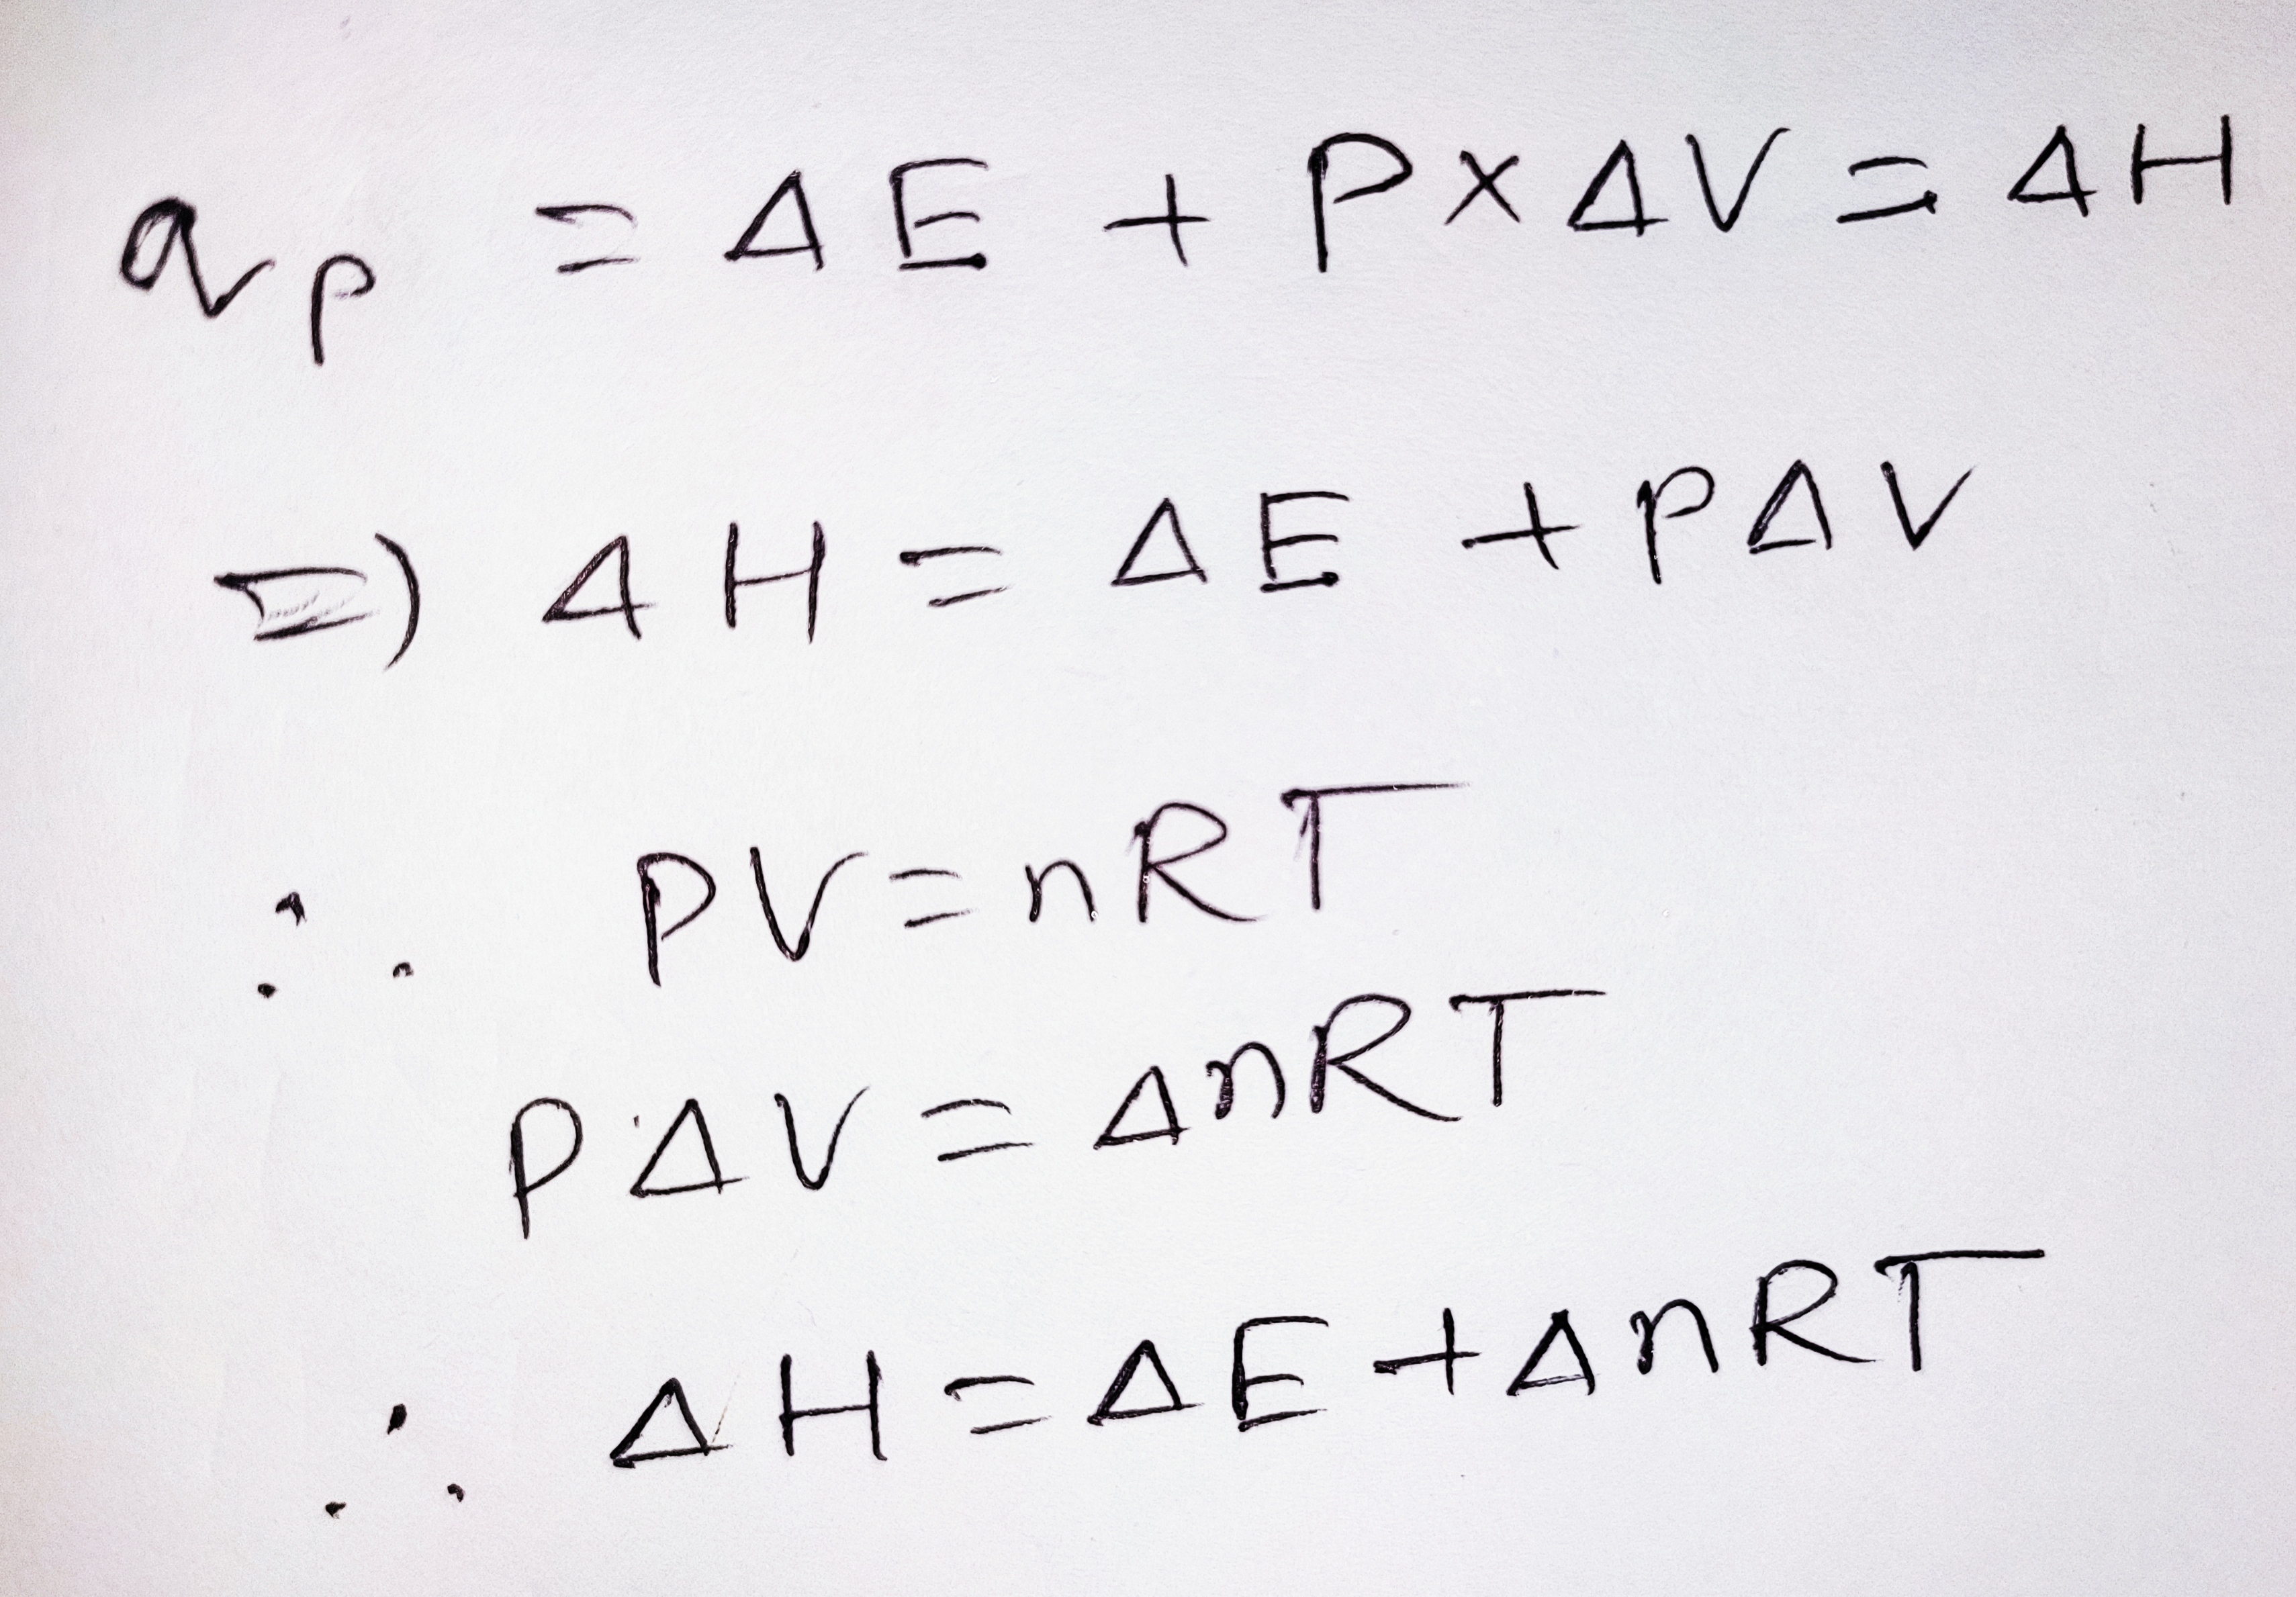 qp = ΔE + P×ΔV = ΔH
⇒ ΔH = ΔE + PΔV
∴ PV = nRT
PΔV = ΔnRT
∴ ΔH = ΔE + ΔnRT